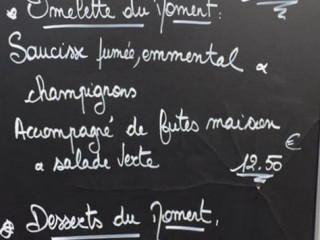 Omelette du Moment:
Saucisse fumée, emmental &
champignons
Accompagné de frites maison
& salade verte 12.50 €
Desserts du Moment.